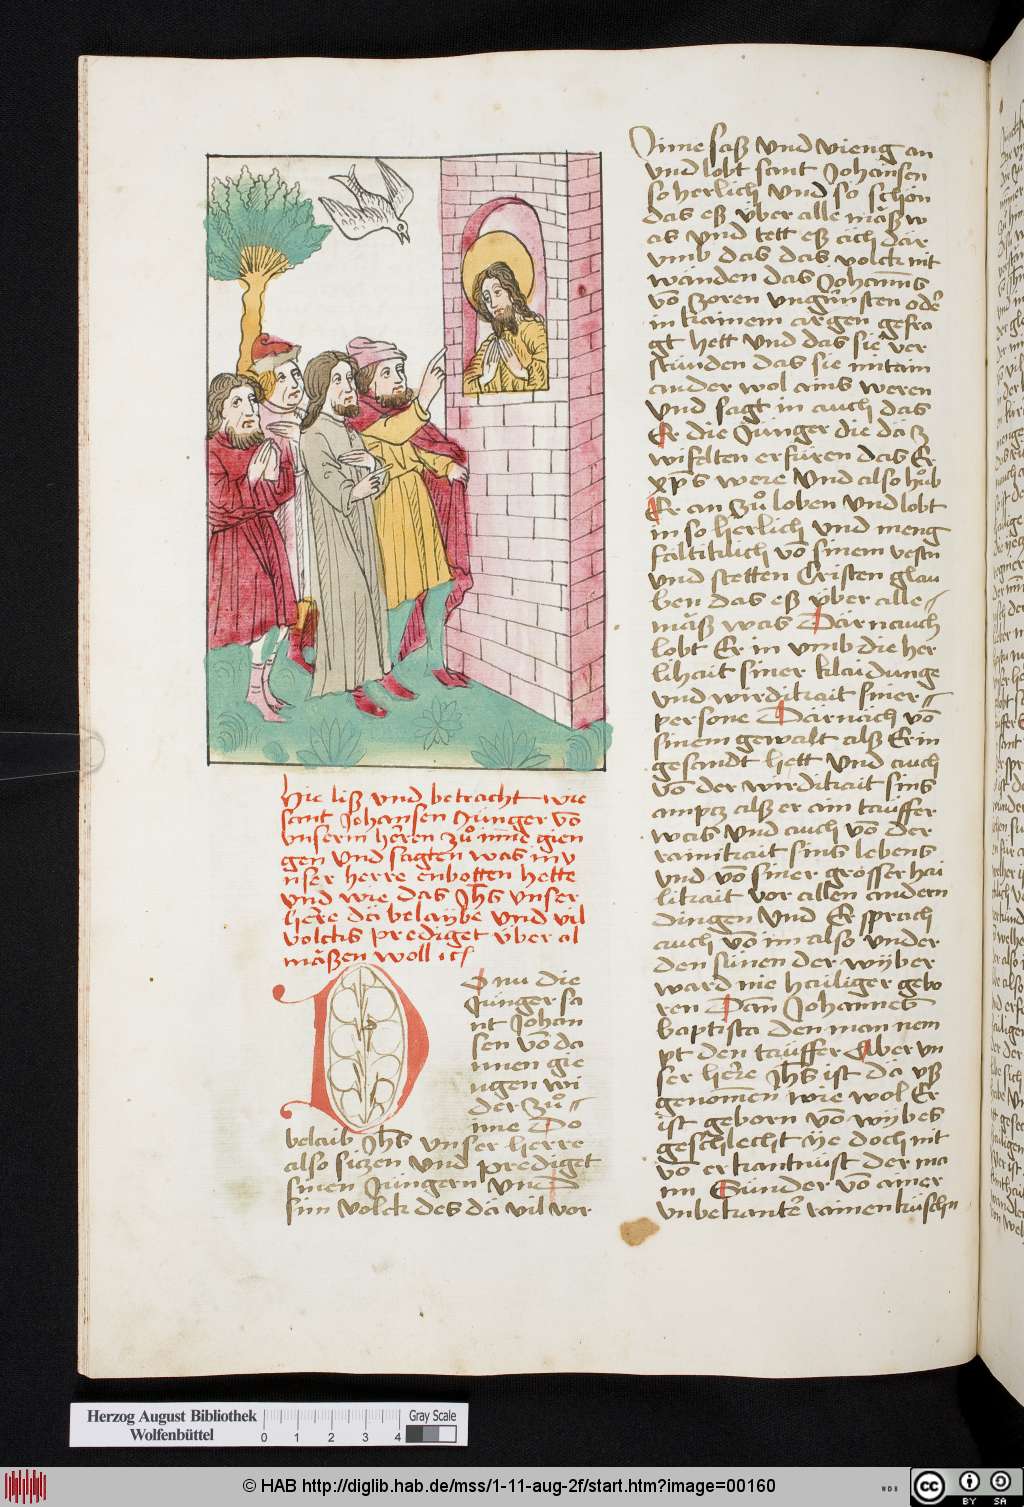 Hie liß und betracht wie
sant Johansen Junger vō
unserm herren zuͦ imme gien
gen und sagten was im v
nser herre enbotten hette
und wie das Jhs unser
herre dā belaybe und vil
volcks prediget uͤber al
maͤßen woll ⁊c
D nu die
Junger sa
nt Johan
sen vō da
nnen gie
ngen wi
der zuͦ
ime Do
belaib Jhs unser herre
also siczen und prediget
sinen Jungern und
sim volck des dā vil vor
Jme saß und vieng an
und lobt sant Johansen
so herlich und so schön
das eß uͤber alle maͤß w
as und tett eß āch dār
umb das das volck nit
wānden das Johannes
vō zoren ungūnsten oder
in kainem argen gefra
gt hett und das sie ver
stūnden das sie mitain
ander wol ains weren
und sagt in auch das
Er die Junger die dā z
wifalten erfūren das Er
xp̄s were und also hūb
Er an zuͦ loben und lobt
in so herlich und meng
faltiklich vō sinem vestn
und stetten Cristen glau
ben das eß uͤber alle
maͤß was Dārnauch
lobt Er in umb die her
lihait siner klaidunge
und wirdikait siner
persone Dārnāch vō
sinem gewalt alß Er in
gesandt hett und auch
vō der wirdikait sins
ampcz alß er ain tauffer
was und auch vō der
rainikait sins lebens
und vō siner grosser hai
likait vor allen andern
dingen und Er sprach
auch vō im also under
den sūnen der wyber
ward nie hailiger gebo
ren Dan Johannes
baptista den man nem
pt den tauffer Aber un
ser herre Jhs ist dā uß
genomen wie wol Er
ist geborn vō wybes
geschlecht ye doch nit
vō erkantnūst der ma
nn Sūnder vō ainer
unbekanter rainen kūschn
Herzog August Bibliothek
Wolfenbüttel
0 1 2 3 4
Gray Scale
© HAB http://diglib.hab.de/mss/1-11-aug-2f/start.htm?image=00160
WDB
CC BY SA